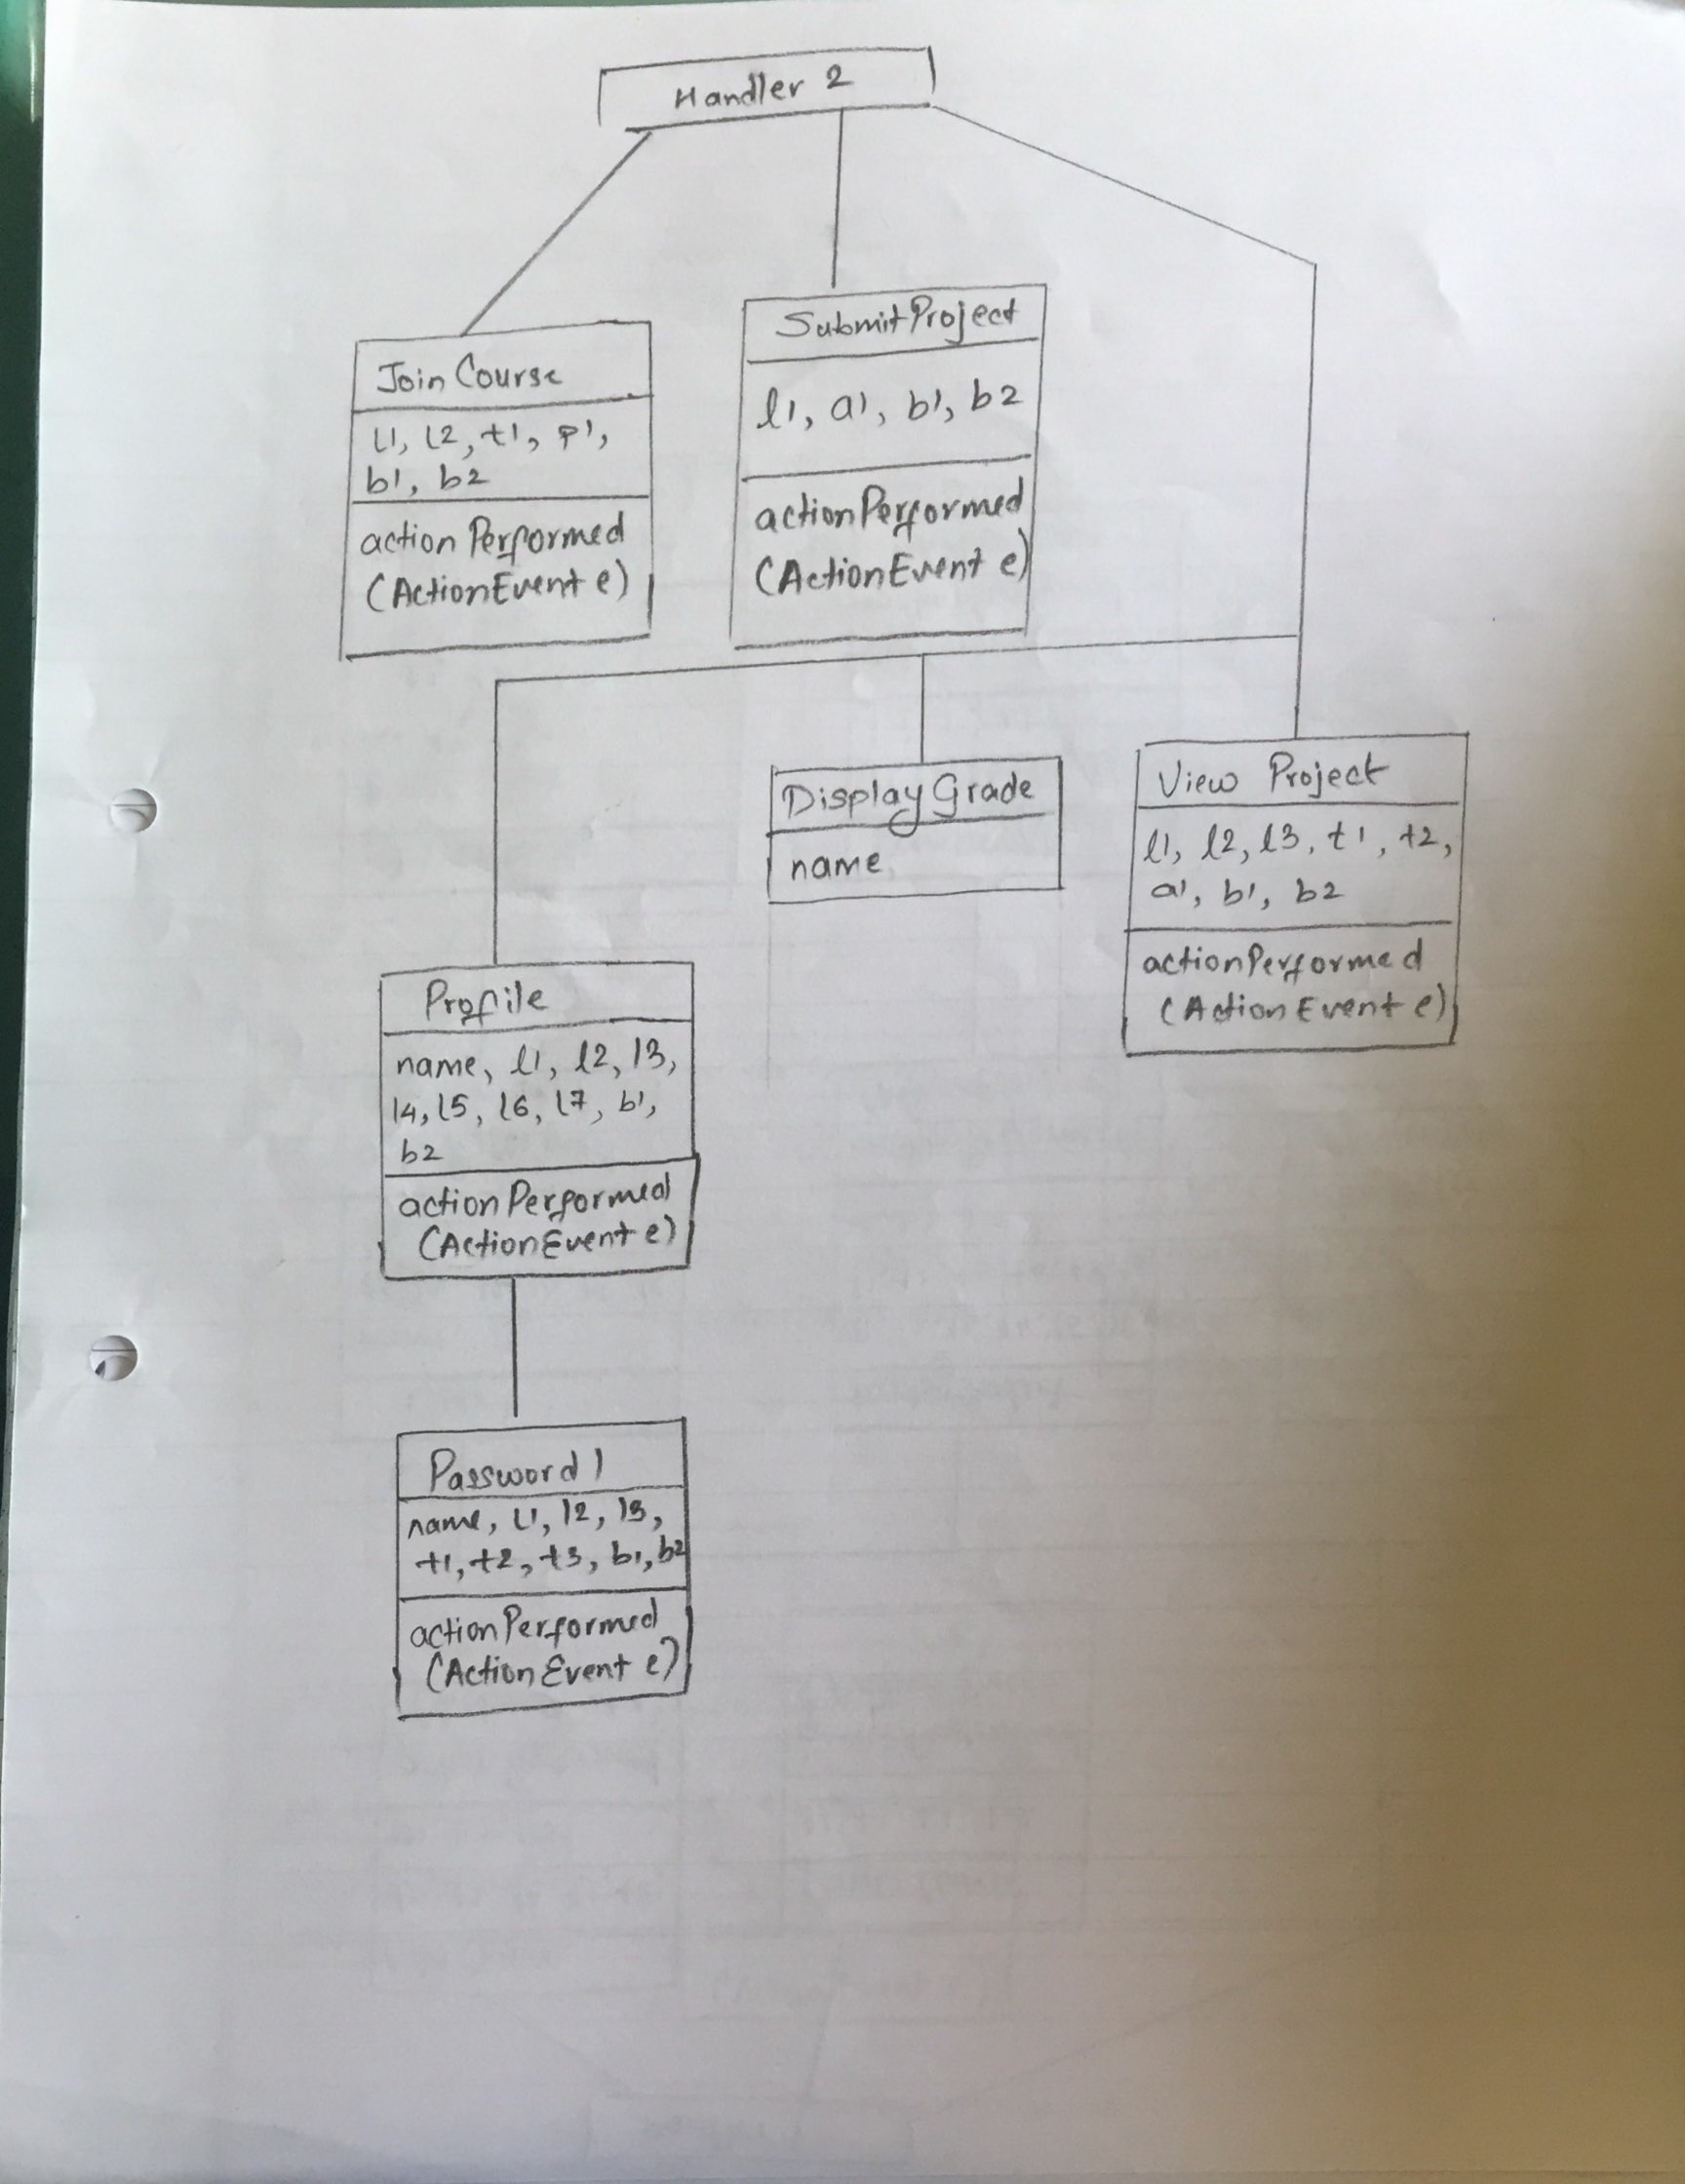 Handler 2
Join Course
l1, l2, t1, p1,
b1, b2
action Performed
(ActionEvent e)
SubmitProject
l1, a1, b1, b2
actionPerformed
(ActionEvent e)
DisplayGrade
name
View Project
l1, l2, l3, t1, t2,
a1, b1, b2
actionPerformed
(Action Event e)
Profile
name, l1, l2, l3,
l4, l5, l6, l7, b1,
b2
action Performed
(ActionEvent e)
Password 1
name, l1, l2, l3,
t1, t2, t3, b1, b2
actionPerformed
(Action Event e)